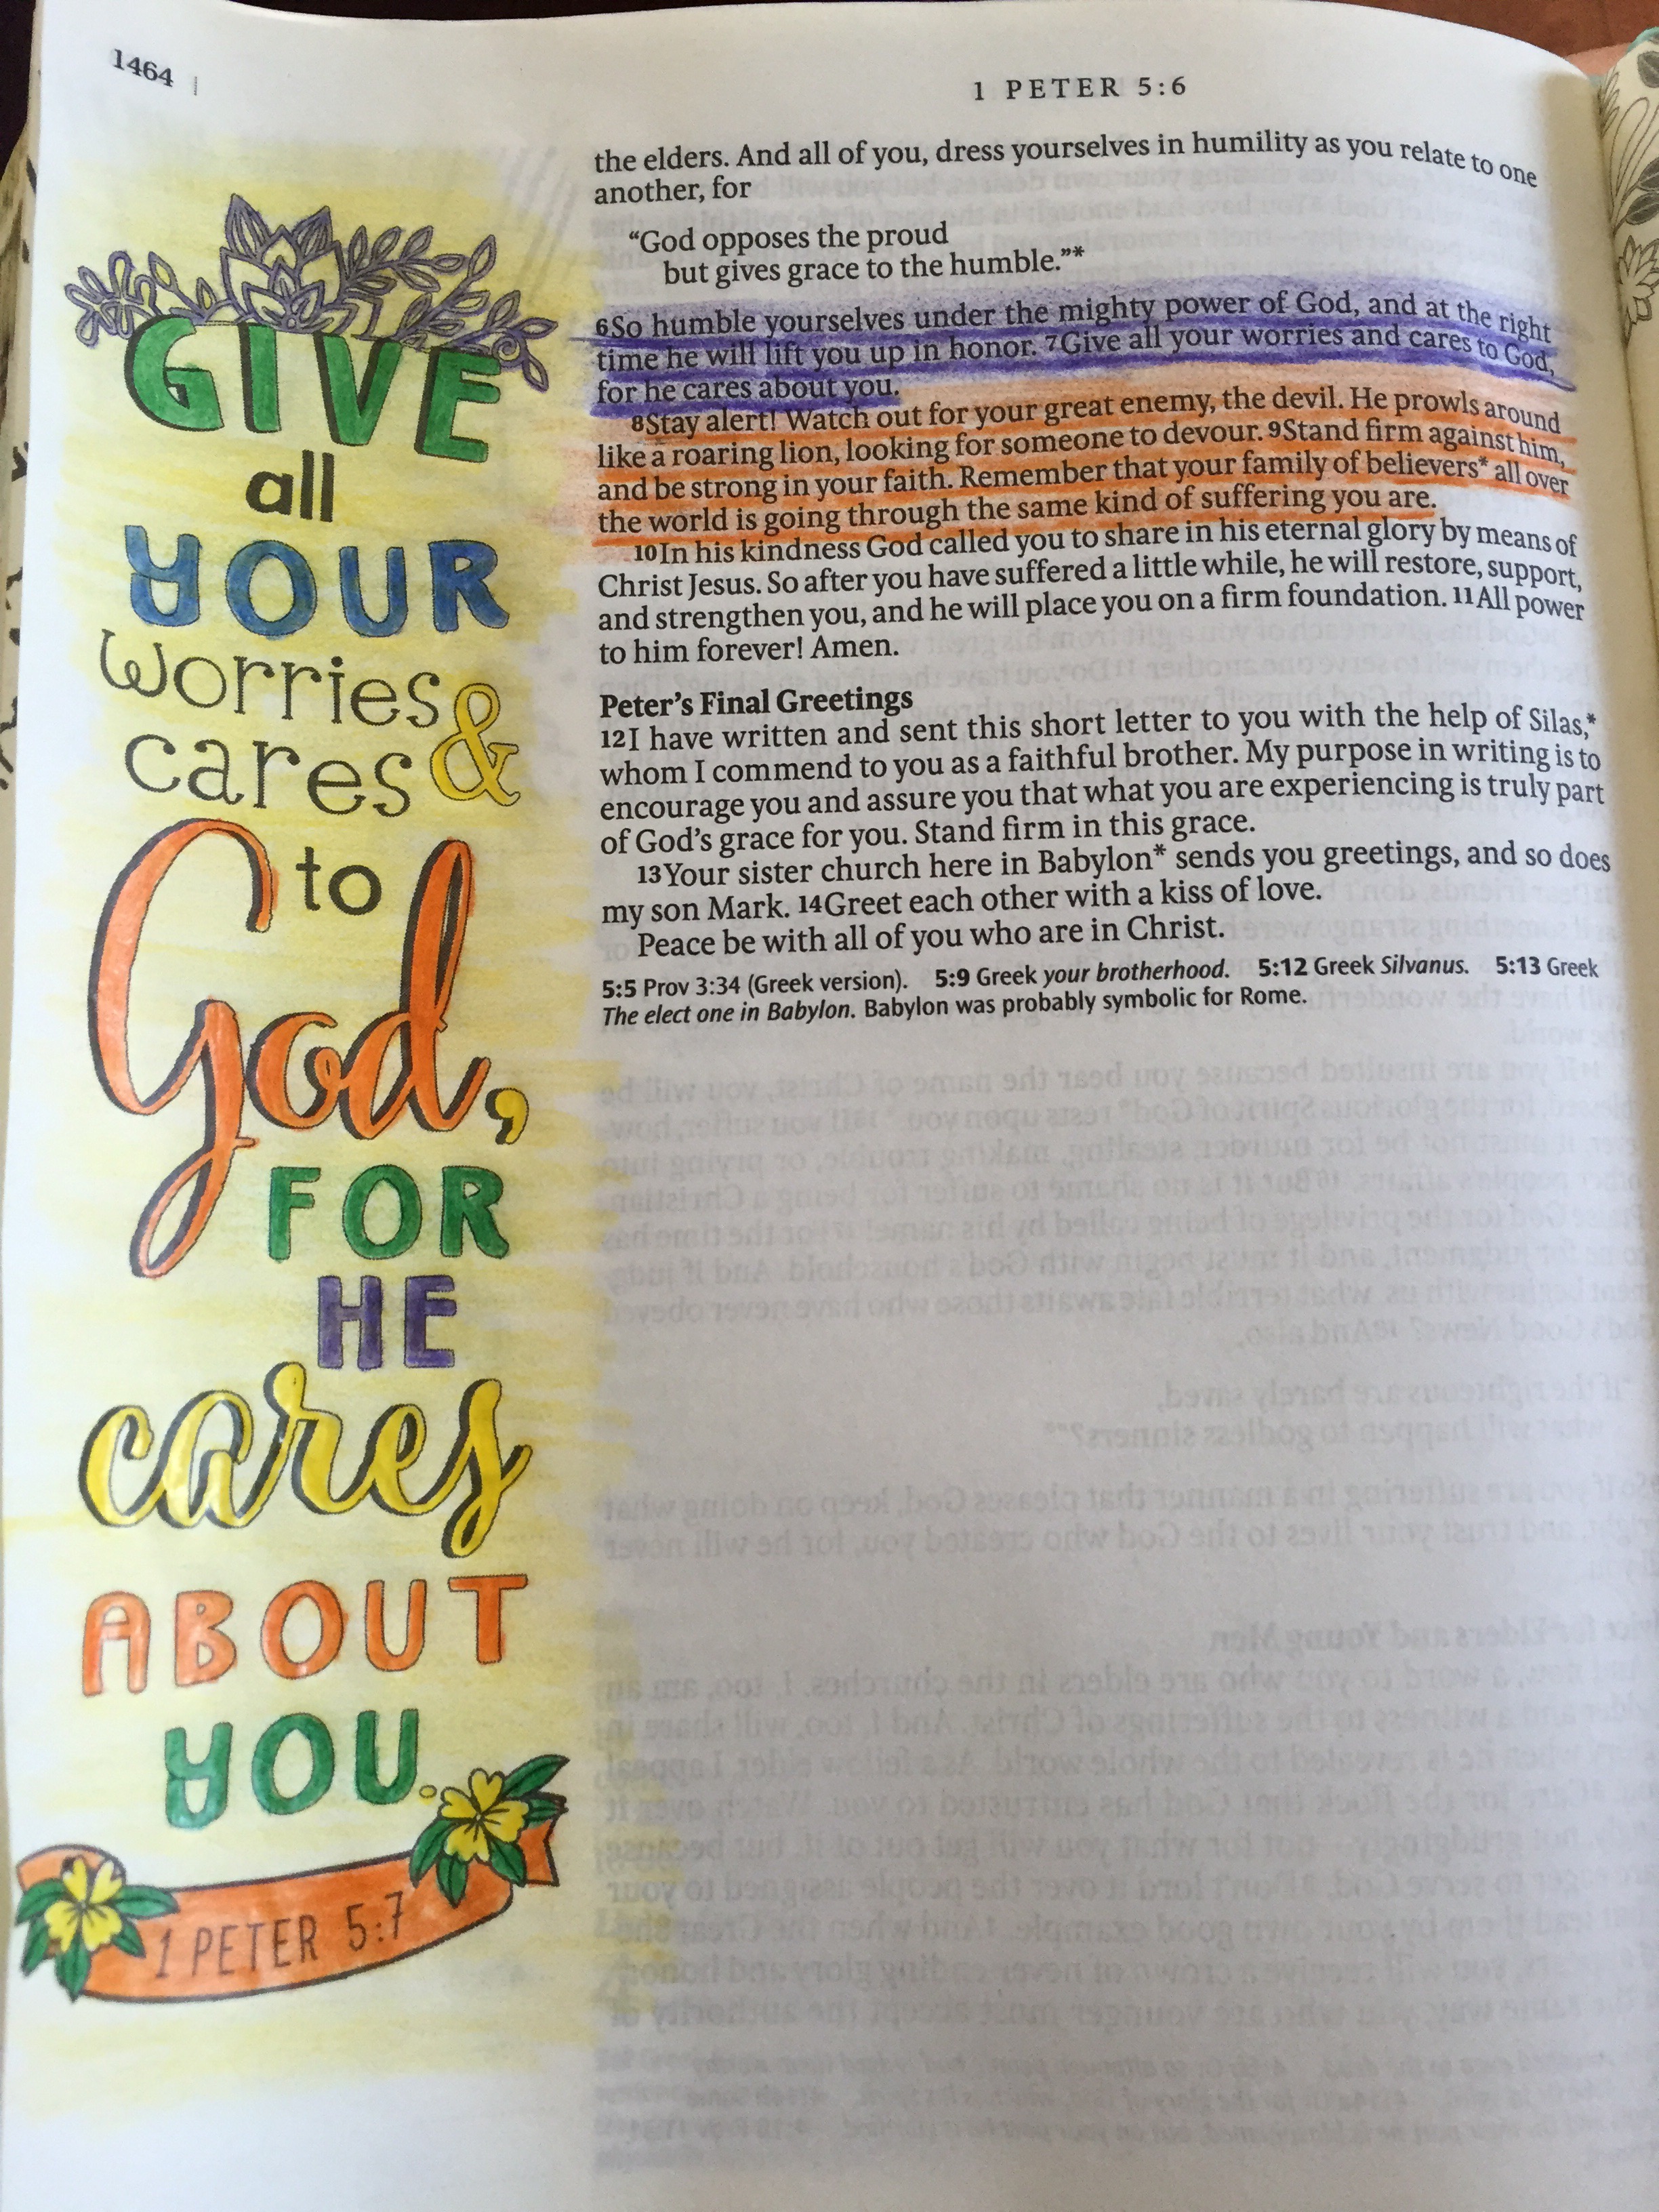 1464
1 PETER 5:6
GIVE
all
YOUR
worries &
cares
to
God,
FOR
HE
cares
ABOUT
YOU.
1 PETER 5:7
the elders. And all of you, dress yourselves in humility as you relate to one
another, for
“God opposes the proud
but gives grace to the humble.”*
6So humble yourselves under the mighty power of God, and at the right
time he will lift you up in honor. 7Give all your worries and cares to God,
for he cares about you.
8Stay alert! Watch out for your great enemy, the devil. He prowls around
like a roaring lion, looking for someone to devour. 9Stand firm against him,
and be strong in your faith. Remember that your family of believers* all over
the world is going through the same kind of suffering you are.
10In his kindness God called you to share in his eternal glory by means of
Christ Jesus. So after you have suffered a little while, he will restore, support,
and strengthen you, and he will place you on a firm foundation. 11All power
to him forever! Amen.
Peter’s Final Greetings
12I have written and sent this short letter to you with the help of Silas,*
whom I commend to you as a faithful brother. My purpose in writing is to
encourage you and assure you that what you are experiencing is truly part
of God’s grace for you. Stand firm in this grace.
13Your sister church here in Babylon* sends you greetings, and so does
my son Mark. 14Greet each other with a kiss of love.
Peace be with all of you who are in Christ.
5:5 Prov 3:34 (Greek version). 5:9 Greek your brotherhood. 5:12 Greek Silvanus. 5:13 Greek
The elect one in Babylon. Babylon was probably symbolic for Rome.